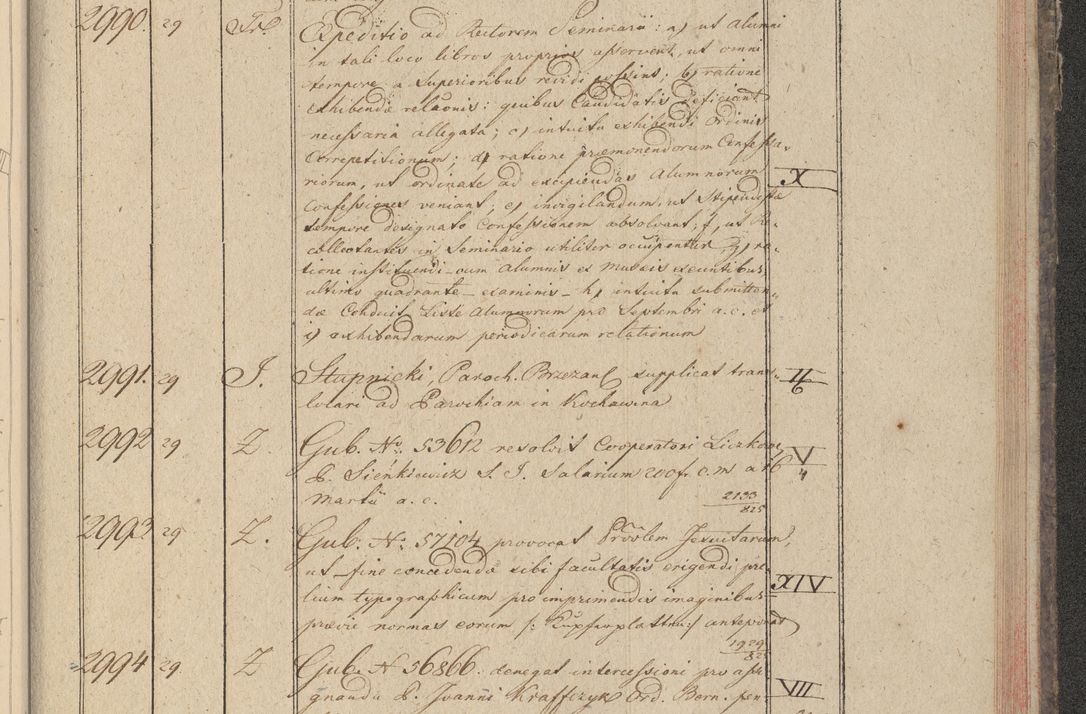 2990. 29 Tr. Expeditio ad Rectorem Seminarii: a) ut Alumni
in tali loco libros proprios asservent, ut omni
tempore a Superioribus revidi possint; b) ratione
exhibendae relaonis: quibus Candidatis deficiant
necessaria allegata; c) intuitu exhibendi Ordinis
Correpetitionum; d) ratione praemonendorum Confessa-
riorum, ut ordinate ad excipiendas Alumnorum X
Confessiones veniant; e) invigilandum, ut Stipendistae
tempore designato Confessionem absolvant; f, ut
collectantes in Seminario utiliter occupentur g) ra-
tione instituendi cum Alumnis ex Musaeis exeuntibus
ultimo quadrante examinis h) intuitu submitten-
dae Conduit Liste Alumnorum pro Septembri a. c. et
i) exhibendarum periodicarum relationum
2991. 29 J. Stupnicki, Paroch. Brzezan supplicat trans-
locari ad Parochiam in Kochawina
2992 29 Z. Gub. No. 53612 resolvit Cooperatori Liczkowc V
P. Sieńkiewicz S. J. Salarium 200 f. c. m a 16 4
martii a. c. 2133
825
2993 29 Z. Gub. No. 57104 provocat Provlem Jesuitarum,
ut fine concedendae sibi facultatis erigendi pre-
lium typographicum pro imprimendis imaginibus XIV
praevie normas eorum /: Kupferplatten :/ anteponat
1929
825
2994 29. Z Gub. N 56866. denegat intercessioni pro assi-
gnanda P. Joanni Kraffczyk Ord. Bern. pen- VII